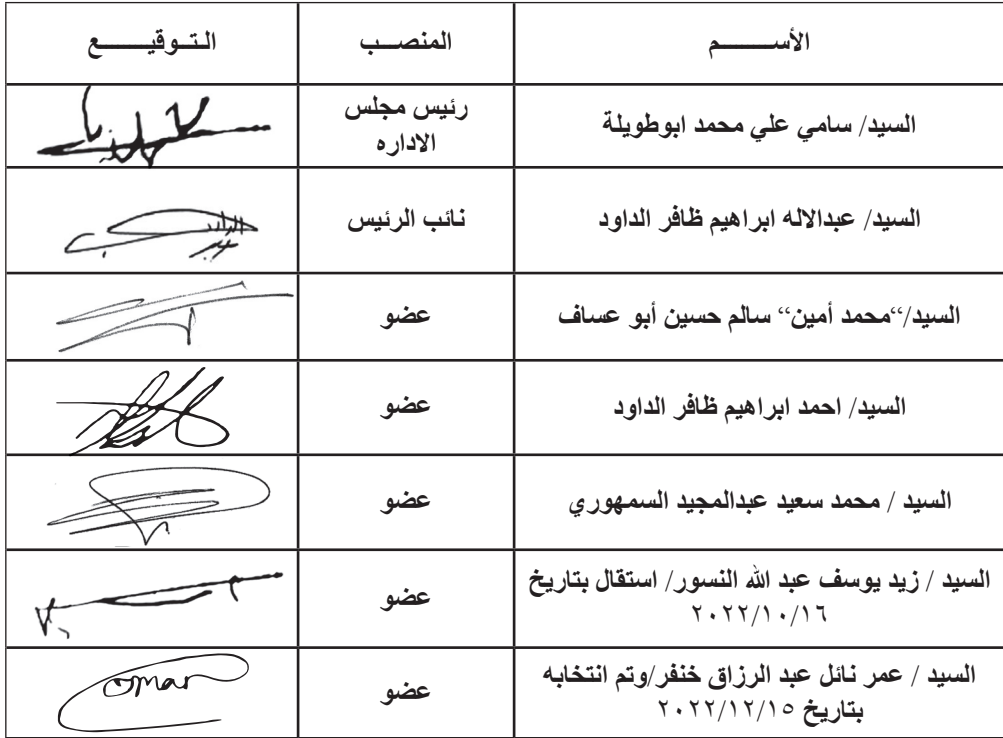 الأســـــــم المنصــب الـتــوقيـــــــع
السيد/ سامي علي محمد ابوطويلة رئيس مجلس
الاداره
السيد/ عبدالاله ابراهيم ظافر الداود نائب الرئيس
السيد/“محمد أمين“ سالم حسين أبو عساف عضو
السيد/ احمد ابراهيم ظافر الداود عضو
السيد / محمد سعيد عبدالمجيد السمهوري عضو
السيد / زيد يوسف عبد الله النسور/ استقال بتاريخ
٢٠٢٢/١٠/١٦ عضو
السيد / عمر نائل عبد الرزاق خنفر/وتم انتخابه
بتاريخ ٢٠٢٢/١٢/١٥ عضو
omar